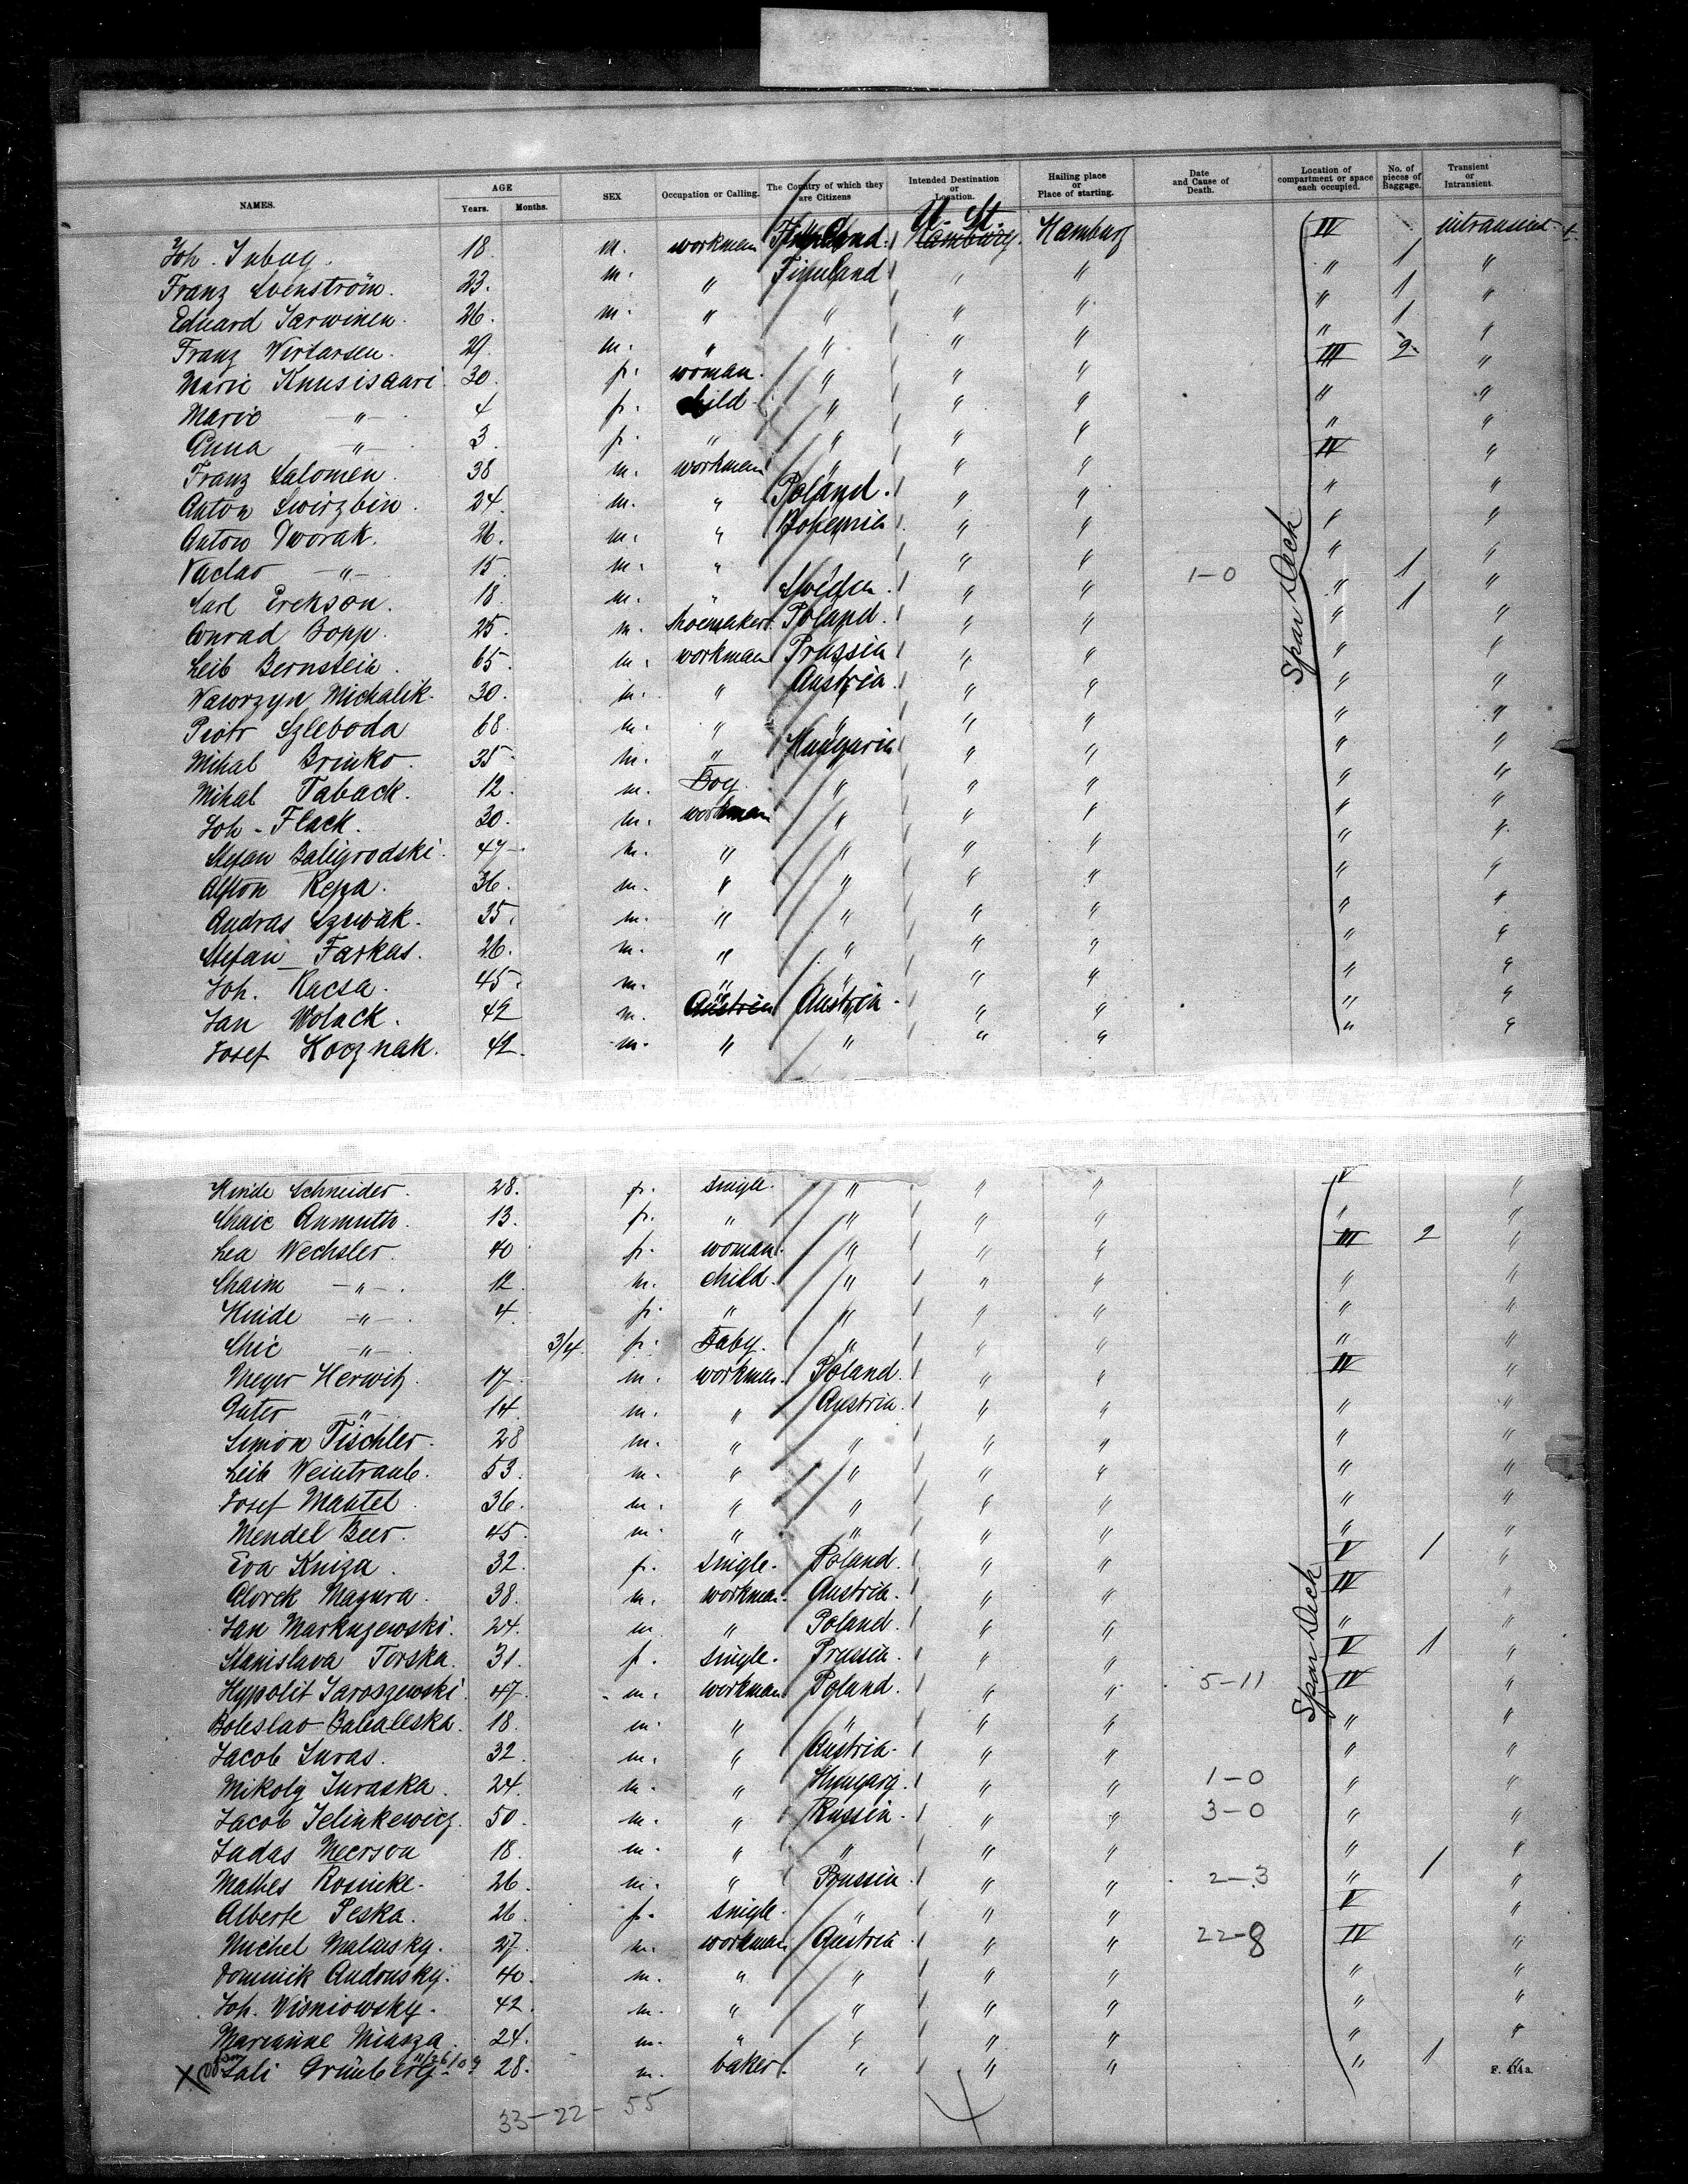 NAMES. AGE Years. Months. SEX Occupation or Calling. The Country of which they are Citizens Intended Destination or Location. Hailing place or Place of starting. Date and Cause of Death. Location of compartment or space each occupied. No. of pieces of Baggage. Transient or Intransient.
U. St.
Joh. 18. m. workman Finnland. Hamburg. Hamburg IV intransient
Franz Svenström. 23. m. " Finnland " " " 1 "
Eduard Sarwinen. 26. m. " " " " " 1 "
Franz Wirtarsen. 29. m. " " " " " 1 "
Marie Knusisaari 30. f. woman. " " " III 2 "
Marie -"- 4 f. child " " " " "
Anna -"- 3 f. " " " " " "
Franz Salomen. 38 m. workman " " " IV "
Anton Swirzbin. 24. m. " Poland. " " " "
Anton Dworak. 26. m. " Bohemia " " " "
Vaclav -"- 15. m. " " " " "
Carl Erekson. 18. m. " Sweden. " " 1-0 " 1 "
Conrad Bopp. 25. m. shoemaker. Poland. " " " 1 "
Leib Bernstein. 65. m. workman Prussia " " " "
Wawrzyn Michalik. 30. m. " Austria. " " " "
Piotr Szleboda 68. m. " " " " " "
Mihal Brinko. 35. m. " Hungaria " " " "
Mihal Taback. 12. m. Boy. " " " " "
Joh. Flack. 30. m. workman " " " " "
Stefan Baligrodski. 47. m. " " " " " "
Repa. 36. m. " " " " " "
Andras 35. m. " " " " " "
Stefan Farkas. 26. m. " " " " " "
Joh. Racsa. 45. m. " " " " " "
Jan Wolack. 42 m. Austria Austria " " " "
Josef Kooznak. 42. m. " " " " " "
Spar Deck
Hinde Schneider. 28. f. single. " " " V "
Chaie Anmuth. 13. f. " " " " " "
Lea Wechsler. 40 f. woman. " " " III 2 "
Chaim -"-. 12. m. child. " " " " "
Hinde -"-. 4. f. " " " " " "
Chie -"-. 3/4. f. Baby. " " " " "
Meyer Herwitz. 17. m. workman. Poland. " " IV "
-"- 14. m. " Austria. " " " "
Simon Tischler. 28 m. " " " " " "
Leib Weintraub. 53. m. " " " " " "
Josef Mantel. 36. m. " " " " " "
Mendel Beer. 45. m. " " " " " "
Eva Kniza. 32. f. single. Poland. " " V 1 "
Mazura. 38. m. workman. Austria. " " IV "
Jan 24. m. " Poland. " " " "
Stanislava Torska. 31. f. single. Prussia. " " V 1 "
Hypolit Jaroszewski. 47. m. workman Poland. " " 5-11 IV "
Boleslav 18. m. " " " " " "
Jacob Juras. 32. m. " Austria. " " " "
Mikolg Juraska. 24. m. " Hungary. " " 1-0 " "
Jacob Jelinkewicz. 50. m. " Russia. " " 3-0 " "
Meerson 18. m. " " " " " "
Mathes Rosinke. 26. m. " Prussia. " " 2-3 " 1 "
Alberte Peska. 26. f. single. " " " V "
Michel Malausky. 27. m. workman Austria " " 22-8 IV "
Dominik Andrusky. 40. m. " " " " " "
Joh. Wisniowsky. 42. m. " " " " " "
Marianne Miasza 24. m. " " " " " "
Spar Deck
X Sali Grünberg. 28. m. baker. " " " " 1 "
F. 414a.
33-22-55